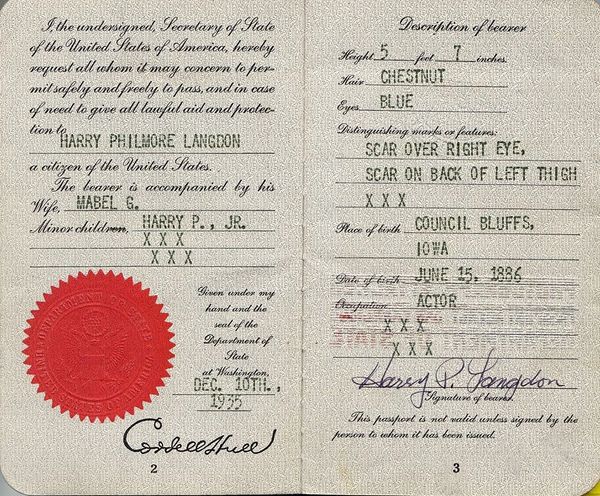 I, the undersigned, Secretary of State
of the United States of America, hereby
request all whom it may concern to per-
mit safely and freely to pass, and in case
of need to give all lawful aid and protec-
tion to
HARRY PHILMORE LANGDON
a citizen of the United States.
The bearer is accompanied by his
Wife, MABEL G.
Minor children, HARRY P., JR.
X X X
X X X
Given under my
hand and the
seal of the
Department of
State
at Washington,
DEC. 10TH.,
1935
Cordell Hull
2
Description of bearer
Height 5 feet 7 inches.
Hair CHESTNUT
Eyes BLUE
Distinguishing marks or features:
SCAR OVER RIGHT EYE,
SCAR ON BACK OF LEFT THIGH
X X X
Place of birth COUNCIL BLUFFS,
IOWA
Date of birth JUNE 15, 1886
Occupation ACTOR
X X X
X X X
Harry P. Langdon
Signature of bearer.
This passport is not valid unless signed by the
person to whom it has been issued.
3